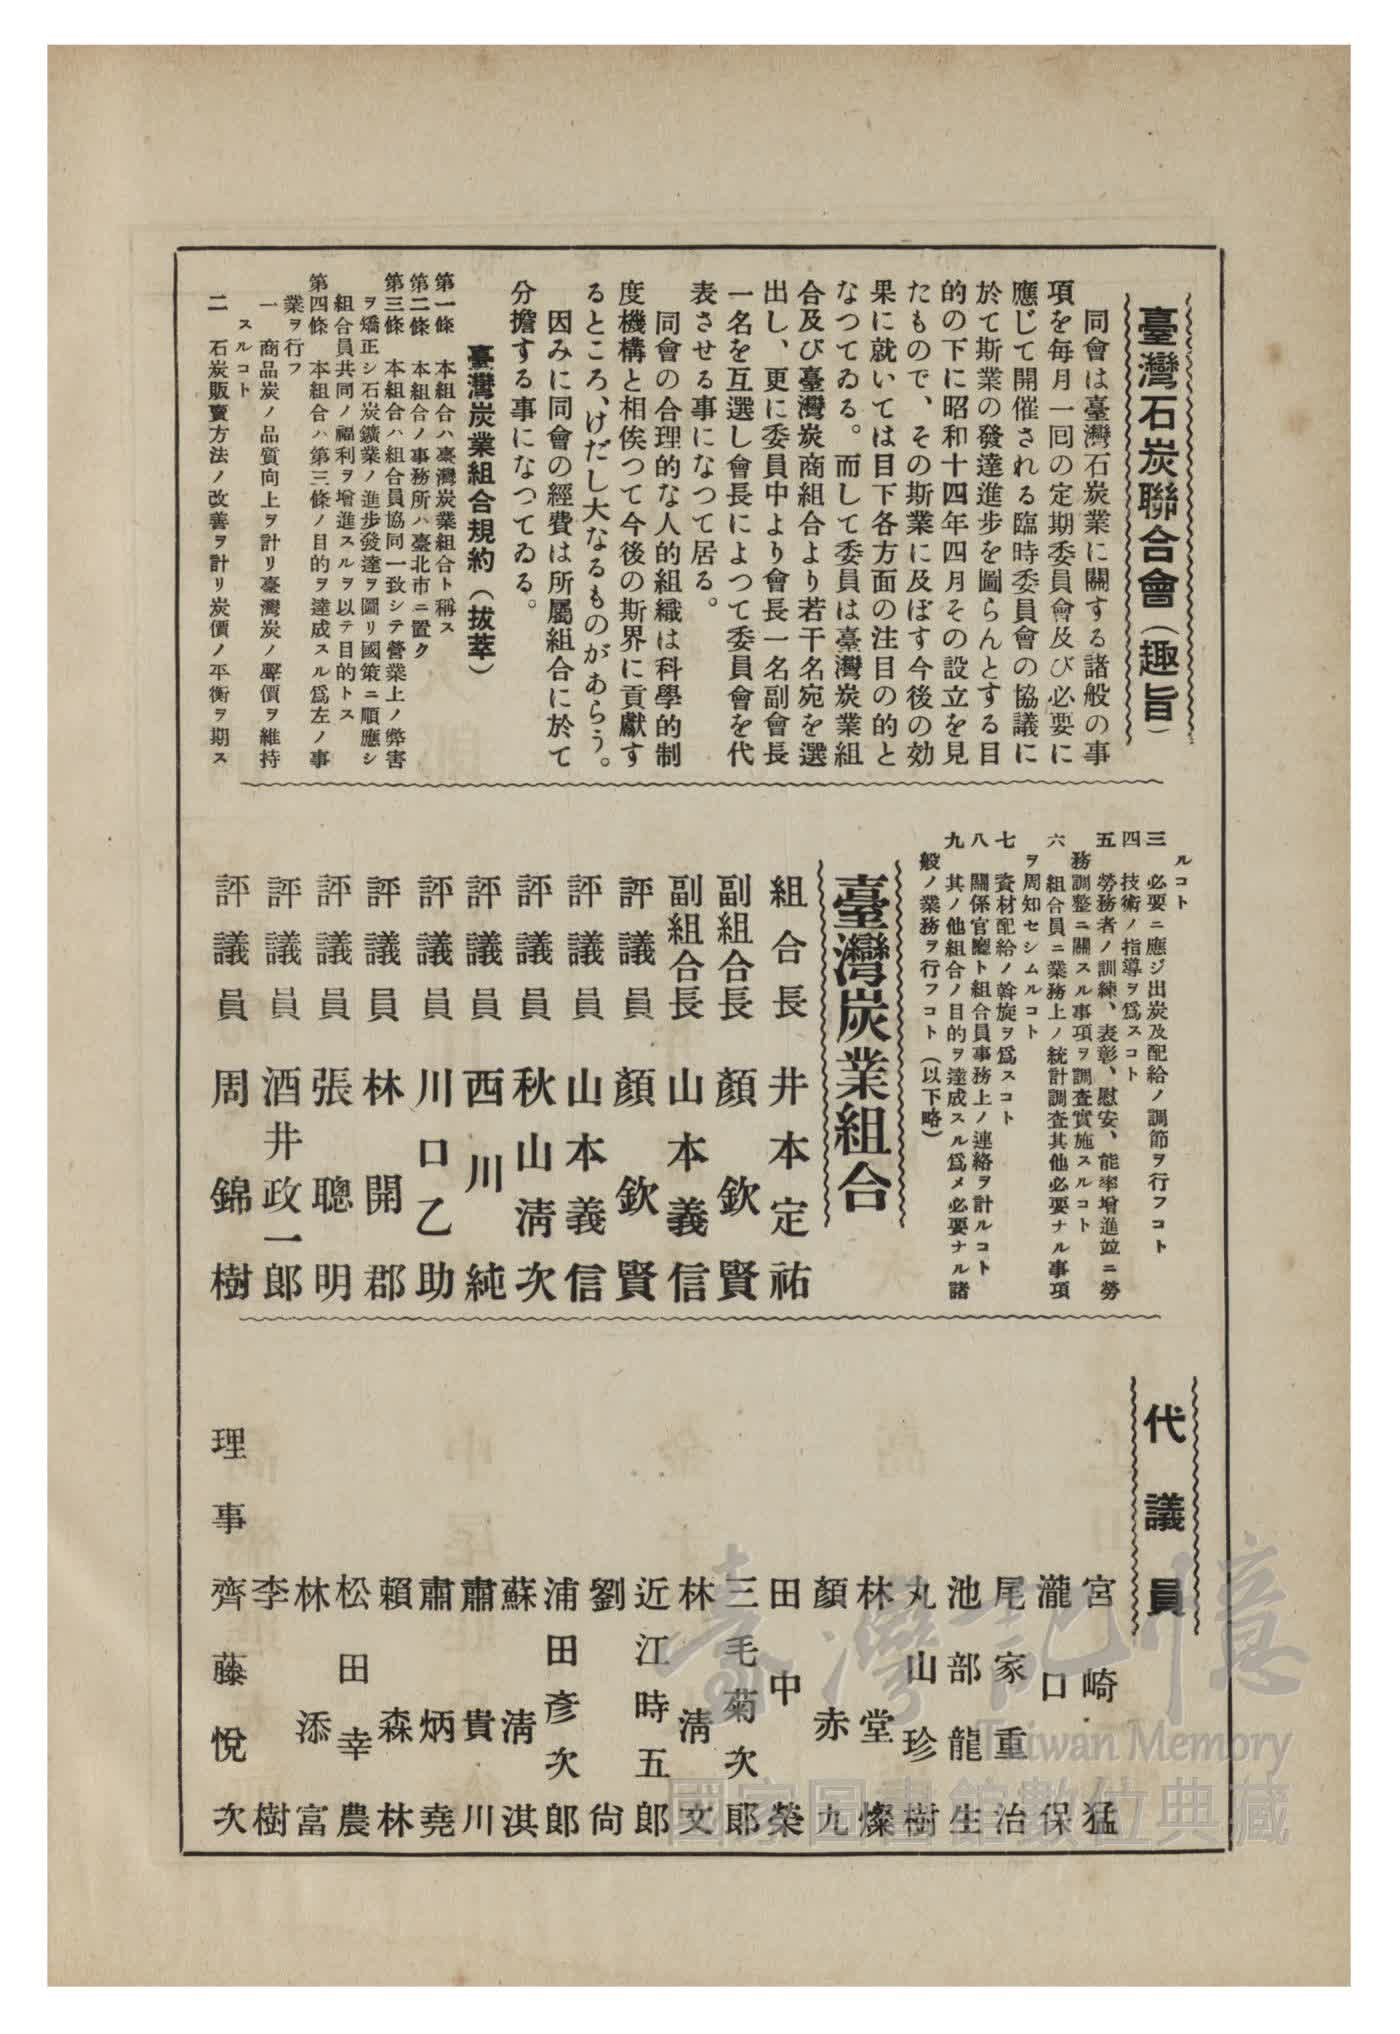 臺灣石炭聯合會(趣旨)
同會は臺灣石炭業に關する諸般の事
項を每月一回の定期委員會及び必要に
應じて開催される臨時委員會の協議に
於て斯業の發達進步を圖らんとする目
的の下に昭和十四年四月その設立を見
たもので、その斯業に及ぼす今後の効
果に就いては目下各方面の注目の的と
なつてゐる。而して委員は臺灣炭業組
合及び臺灣炭商組合より若干名宛を選
出し、更に委員中より會長一名副會長
一名を互選し會長によつて委員會を代
表させる事になつて居る。
同會の合理的な人的組織は科學的制
度機構と相俟つて今後の斯界に貢獻す
るところ、けだし大なるものがあらう。
因みに同會の經費は所屬組合に於て
分擔する事になつてゐる。
臺灣炭業組合規約(拔萃)
第一條 本組合ハ臺灣炭業組合ト稱ス
第二條 本組合ノ事務所ハ臺北市ニ置ク
第三條 本組合ハ組合員協同一致シテ營業上ノ弊害
ヲ矯正シ石炭鑛業ノ進步發達ヲ圖リ國策ニ順應シ
組合員共同ノ福利ヲ增進スルヲ以テ目的トス
第四條 本組合ハ第三條ノ目的ヲ達成スル爲左ノ事
業ヲ行フ
一 商品炭ノ品質向上ヲ計リ臺灣炭ノ聲價ヲ維持
スルコト
二 石炭販賣方法ノ改善ヲ計リ炭價ノ平衡ヲ期ス
ルコト
三 必要ニ應ジ出炭及配給ノ調節ヲ行フコト
四 技術ノ指導ヲ爲スコト
五 勞務者ノ訓練、表彰、慰安、能率增進竝ニ勞
務調整ニ關スル事項ヲ調査實施スルコト
六 組合員ニ業務上ノ統計調査其他必要ナル事項
ヲ周知セシムルコト
七 資材配給ノ斡旋ヲ爲スコト
八 關係官廳ト組合員事務上ノ連絡ヲ計ルコト
九 其ノ他組合ノ目的ヲ達成スル爲メ必要ナル諸
般ノ業務ヲ行フコト(以下略)
臺灣炭業組合
組合長 井本定祐
副組合長 顏欽賢
副組合長 山本義信
評議員 顏欽賢
評議員 山本義信
評議員 秋山淸次
評議員 西川純
評議員 川口乙助
評議員 林開郡
評議員 張聰明
評議員 酒井政一郎
評議員 周錦樹
代議員
宮崎猛
瀧口保
尾家重治
池部龍生
丸山珍樹
林堂燦
顏赤九
田中榮
三毛菊次郎
林淸文
近江時五郎
劉尙
浦田彥次郎
蘇淸淇
肅貴川
肅炳堯
賴森林
松田幸農
林添富
李樹
理事 齊藤悅次
臺灣記憶
Taiwan Memory
國家圖書館數位典藏